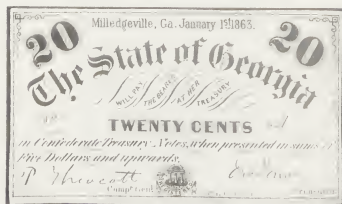 Milledgeville, Ga. January 1st 1863.
20 20
The State of Georgia
WILL PAY THE BEARER AT HER TREASURY
TWENTY CENTS
in Confederate Treasury Notes, when presented in sums of
Five Dollars and upwards.
Compt Genl